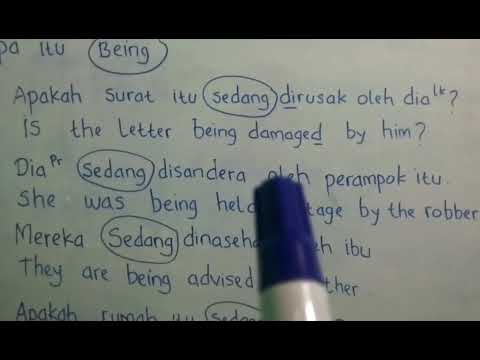 pa itu Being
Apakah surat itu sedang dirusak oleh dia lk?
Is the Letter being damaged by him?
Dia Pr sedang disandera oleh perampok itu.
she was being hel tage by the robber
Mereka Sedang dinaseha eh ibu
They are being advised ther
Apakah rumah itu sedang